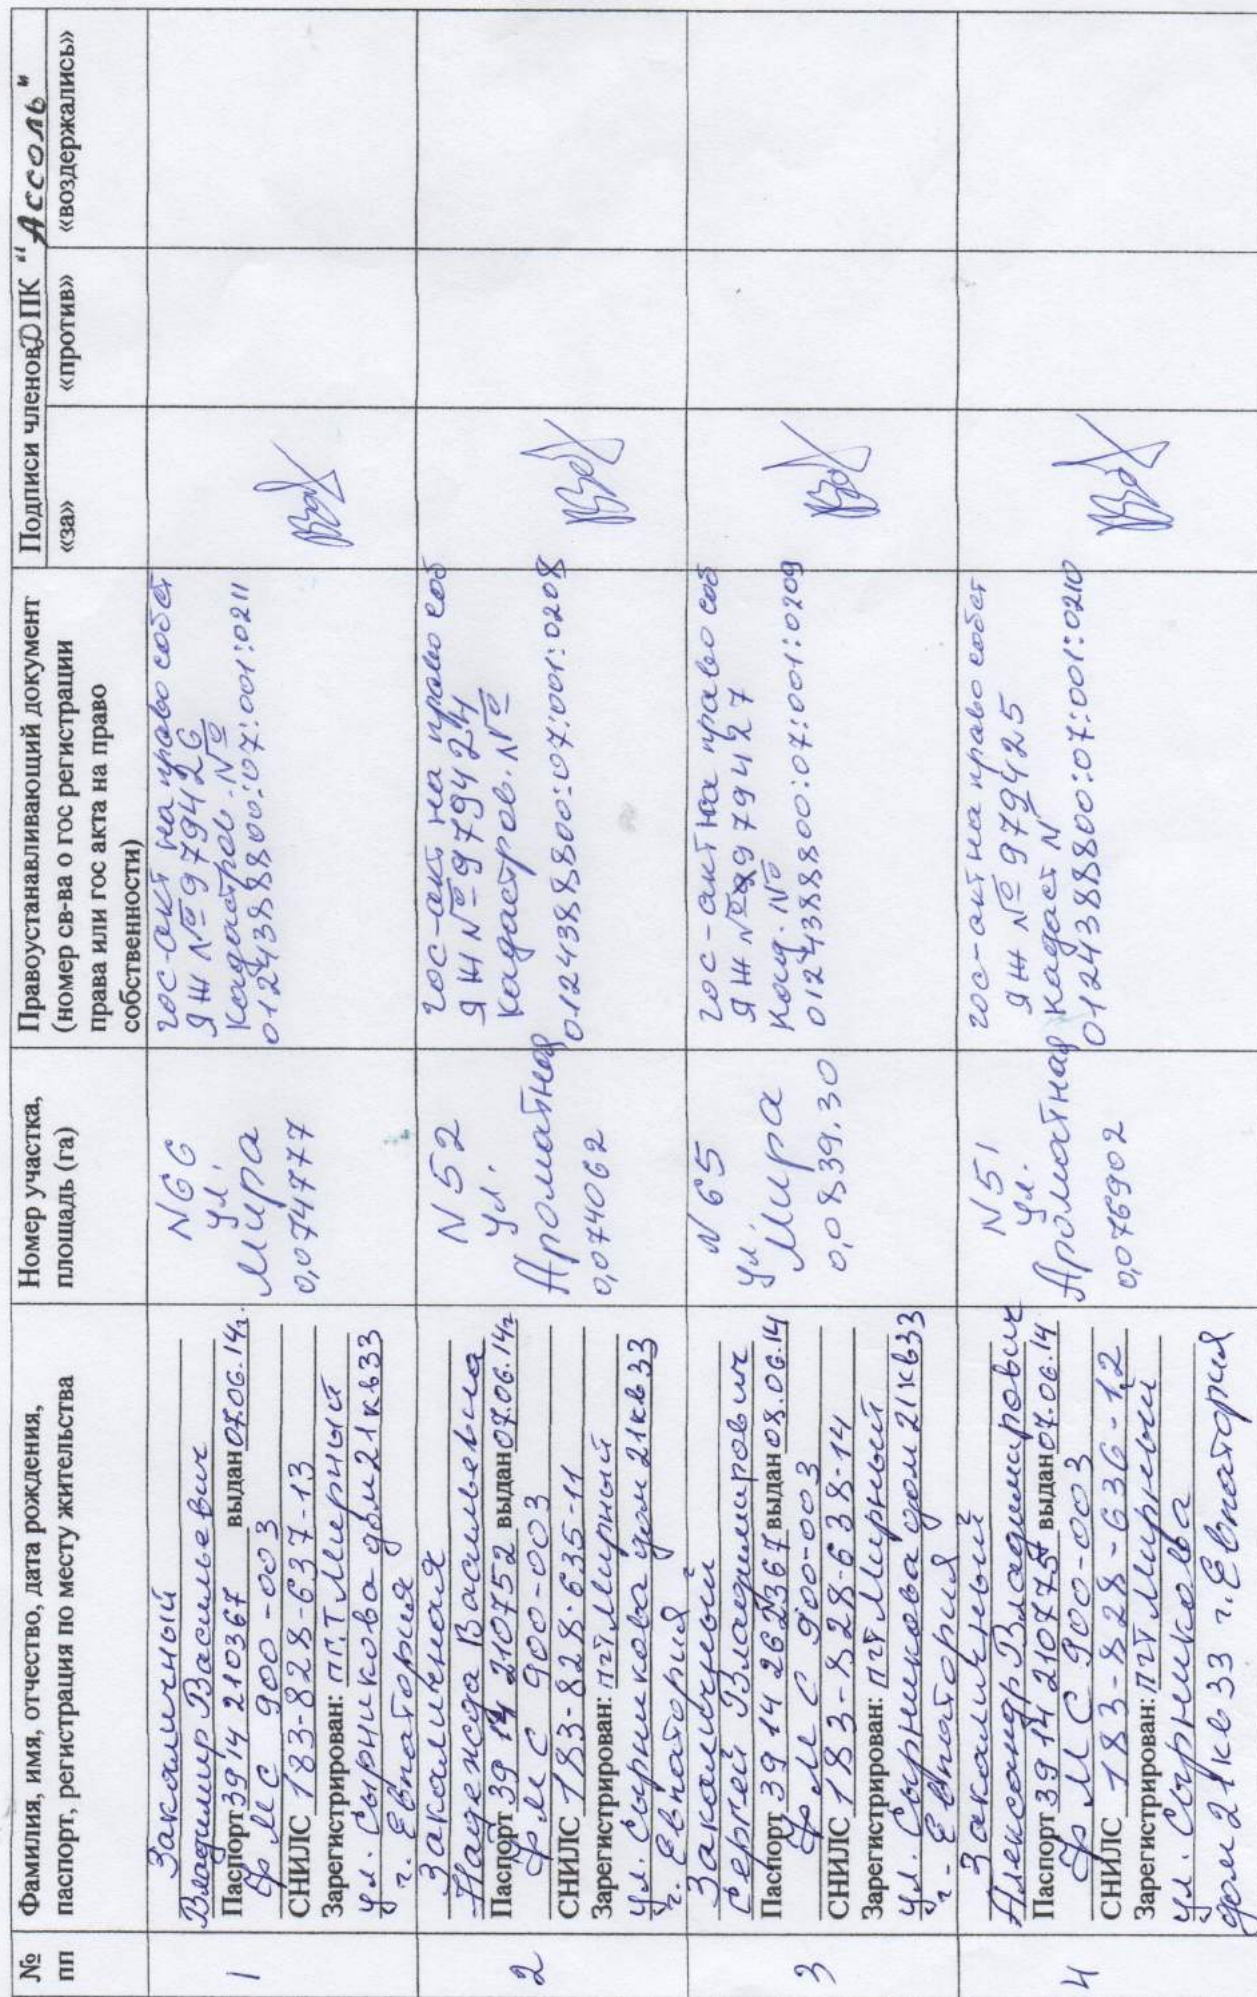 №
пп
Фамилия, имя, отчество, дата рождения,
паспорт, регистрация по месту жительства
Номер участка,
площадь (га)
Правоустанавливающий документ
(номер св-ва о гос регистрации
права или гос акта на право
собственности)
Подписи членов ДПК "Ассоль"
«за»
«против»
«воздержались»
1
Закаличный
Владимир Васильевич
Паспорт 3914 210367 выдан 07.06.14г.
ФМС 900-003
СНИЛС 183-828-637-13
Зарегистрирован: п.г.т Мирный
ул. Сырникова дом 21 кв 33
г. Евпатория
N66
ул.
Мира
0,074777
гос-акт на право собст
ЯЖ № 979426
Кадастров. №
0124388800:07:001:0211
2
Закаличная
Надежда Васильевна
Паспорт 39 14 210752 выдан 07.06.14г
ФМС 900-003
СНИЛС 183-828-635-11
Зарегистрирован: пгт Мирный
ул. Сырникова дом 21 кв 33
г. Евпатория
N 52
ул.
Ароматная
0,074062
гос-акт на право соб
ЯЖ № 979424
кадастров. №
0124388800:07:001:0208
3
Закаличный
Сергей Владимирович
Паспорт 39 14 262367 выдан 08.06.14
ФМС 900-003
СНИЛС 183-828-638-14
Зарегистрирован: пгт Мирный
ул. Сырникова дом 21 кв 33
г. Евпатория
N 65
ул.
Мира
0,0839.30
гос-акт на право соб
ЯЖ № 979427
Кад. №
0124388800:07:001:0209
4
Закаличный
Александр Владимирович
Паспорт 3914 210757 выдан 07.06.14
ФМС 900-003
СНИЛС 183-828-636-12
Зарегистрирован: пгт Мирный
ул. Сырникова
дом 21 кв 33 г. Евпатория
N 51
ул.
Ароматная
0,076902
гос-акт на право собст
ЯЖ № 979425
кадаст N
0124388800:07:001:0210